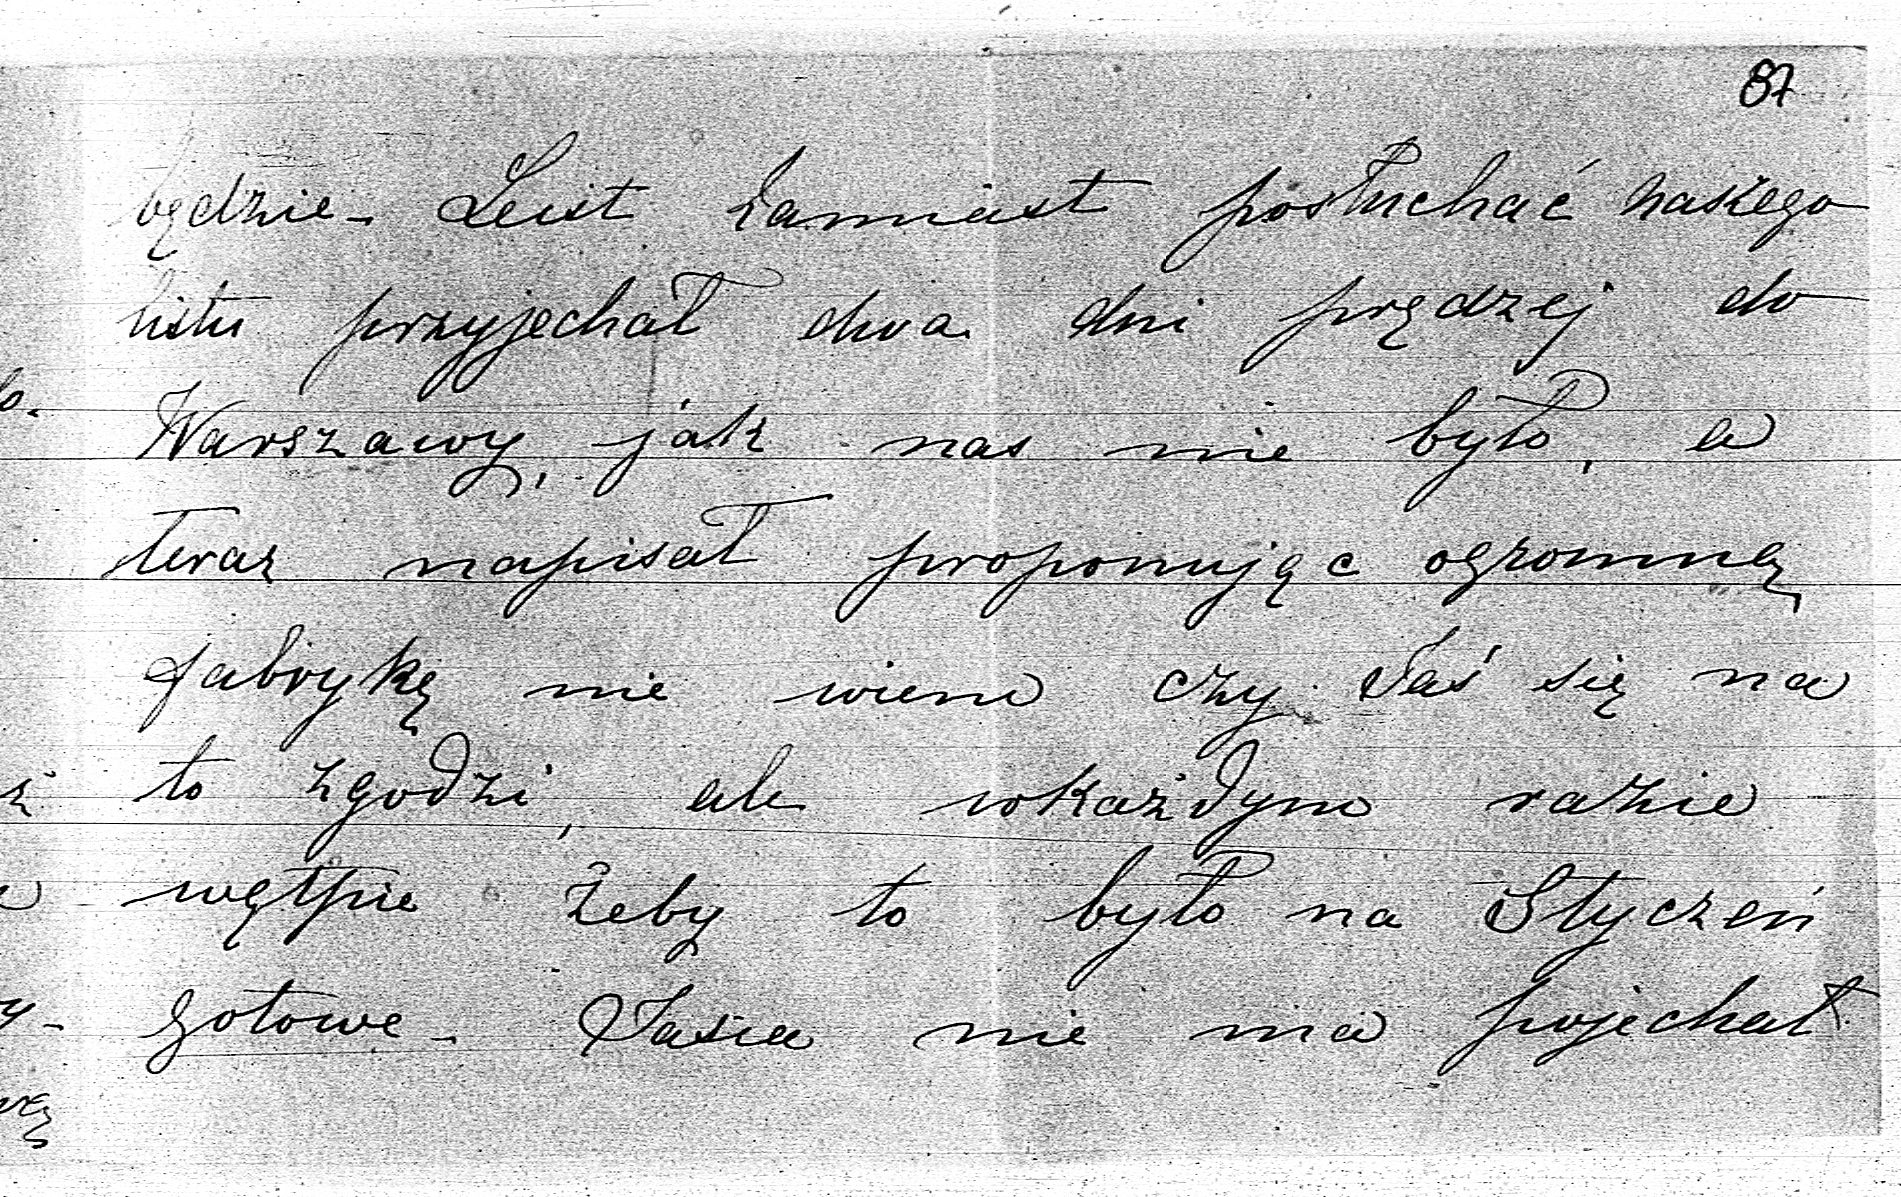 87
będzie - Leist zamiast posłuchać naszego
listu przyjechał dwa dni prędzej do
Warszawy, jak nas nie było, a
teraz napisał proponując ogromną
fabrykę nie wiem czy Jaś się na
to zgodzi, ale wkażdym razie
wątpię żeby to było na Styczeń
gotowe - Jasia nie ma pojechał